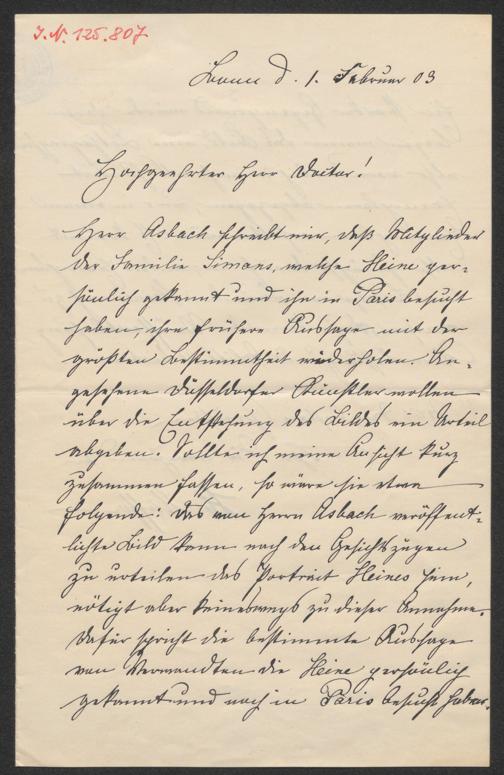 I.N. 125.807
Bonn d. 1. Februar 03
Hochgeehrter Herr Doctor!
Herr Asbach schreibt mir, daß Mitglieder
der Familie Simons, welche Heine per-
sönlich gekannt und ihn in Paris besucht
haben, ihre frühere Aussage mit der
größten Bestimmtheit wiederholen. An-
gesehene Düsseldorfer Künstler wollen
über die Entstehung des Bildes ein Urteil
abgeben. Sollte ich meine Ansicht kurz
zusammen fassen, so wäre sie etwa
folgende: Das von Herrn Asbach veröffent-
lichte Bild kann nach den Gesichtszügen
zu urteilen das Portrait Heines sein,
nötigt aber keineswegs zu dieser Annahme.
Dafür spricht die bestimmte Aussage
von Verwandten die Heine persönlich
gekannt und noch in Paris besucht haben.